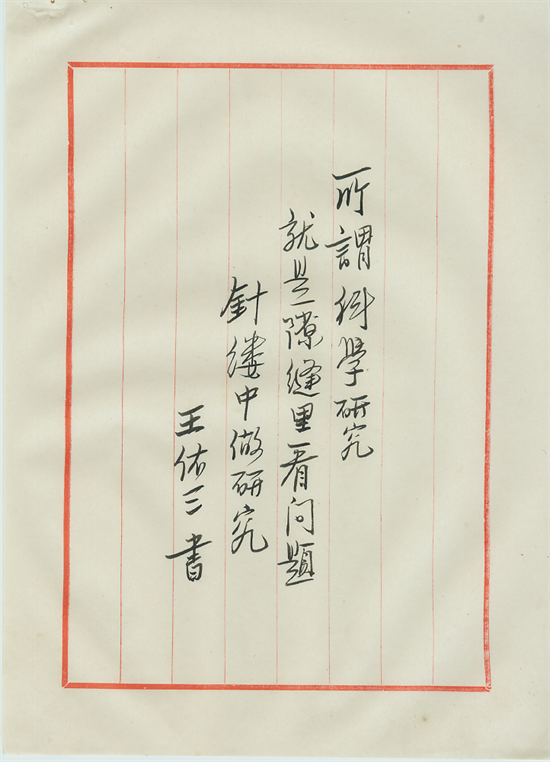 所謂科學研究
就是隙缝里看问題
針缕中做研究
王佑三書